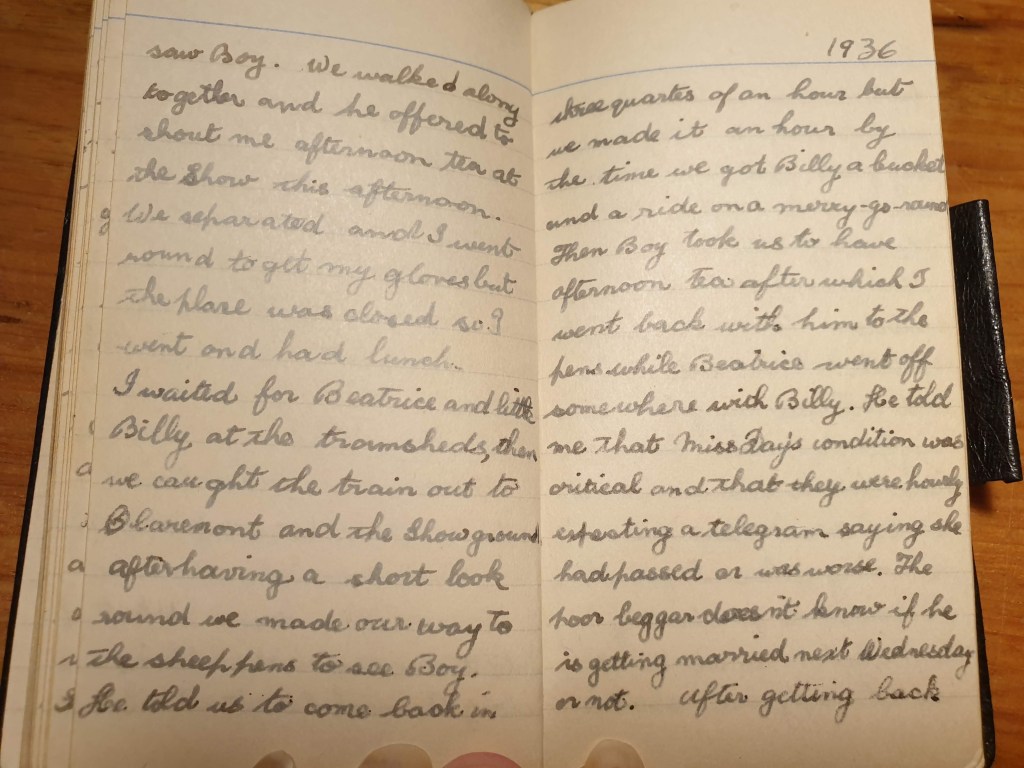 saw Boy. We walked along
together and he offered to
shout me afternoon tea at
the Show this afternoon.
We separated and I went
round to get my gloves but
the place was closed so I
went and had lunch.
I waited for Beatrice and little
Billy at the tramsheds, then
we caught the train out to
Claremont and the Showground
after having a short look
round we made our way to
the sheep pens to see Boy.
He told us to come back in
1936
three quartes of an hour but
we made it an hour by
the time we got Billy a bucket
and a ride on a merry-go-round
Then Boy took us to have
afternoon tea after which I
went back with him to the
pens while Beatrice went off
somewhere with Billy. He told
me that Miss Day's condition was
critical and that they were hourly
expecting a telegram saying she
had passed or was worse. The
poor beggar doesn't know if he
is getting married next Wednesday
or not. After getting back